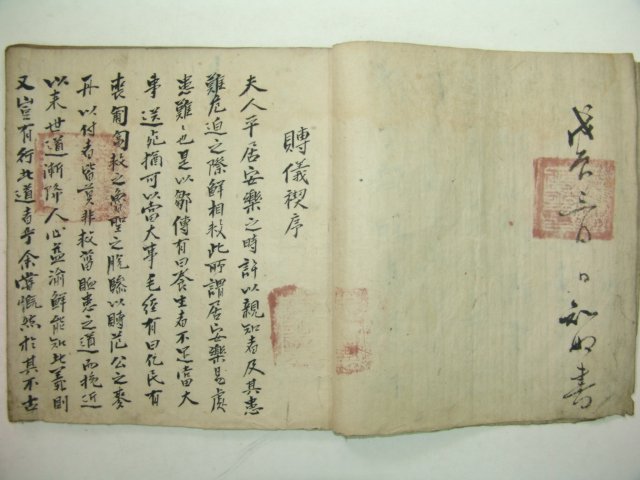 戊辰三月 日 知 書
賻儀稧序
夫人平居安樂之時許以親知者及其患
難危迫之際鮮相救此所謂居安樂易處
患難難也是以鄒傳有曰養生者不足當大
事送死惟可以當大事毛經有曰凡民有
喪匍匐救之魯聖之脫驂以賻范公之麥
舟以付者皆莫非救窘恤患之道而挽近
以來世道漸降人心益渝鮮能知此義則
又豈有行此道者乎余嘗慨然於其不古